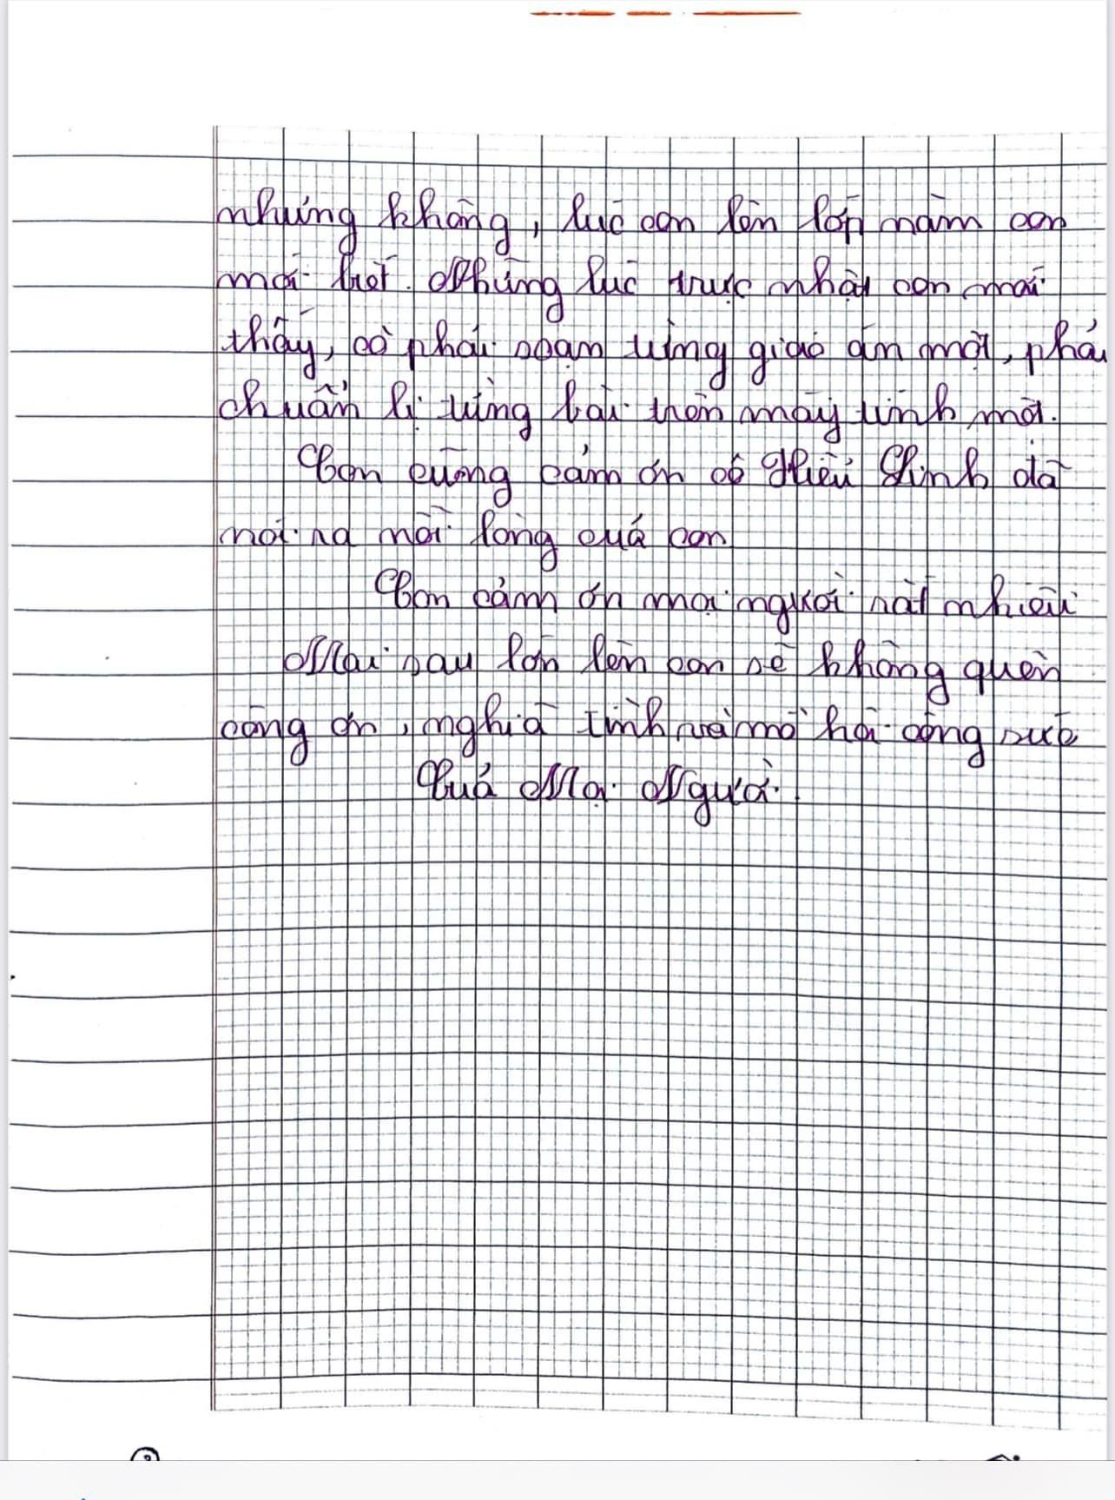 nhưng không, lúc con lên lớp năm con
mới biết. Những lúc trực nhật con mới
thấy, cô phải soạn từng giáo án một, phải
chuẩn bị từng bài trên máy tính một.
Con cũng cảm ơn cô Hiệu Linh đã
nói ra nỗi lòng của con
Con cảm ơn mọi người rất nhiều
Mai sau lớn lên con sẽ không quên
công ơn, nghĩa tình và mồ hôi công sức
Của Mọi Người.